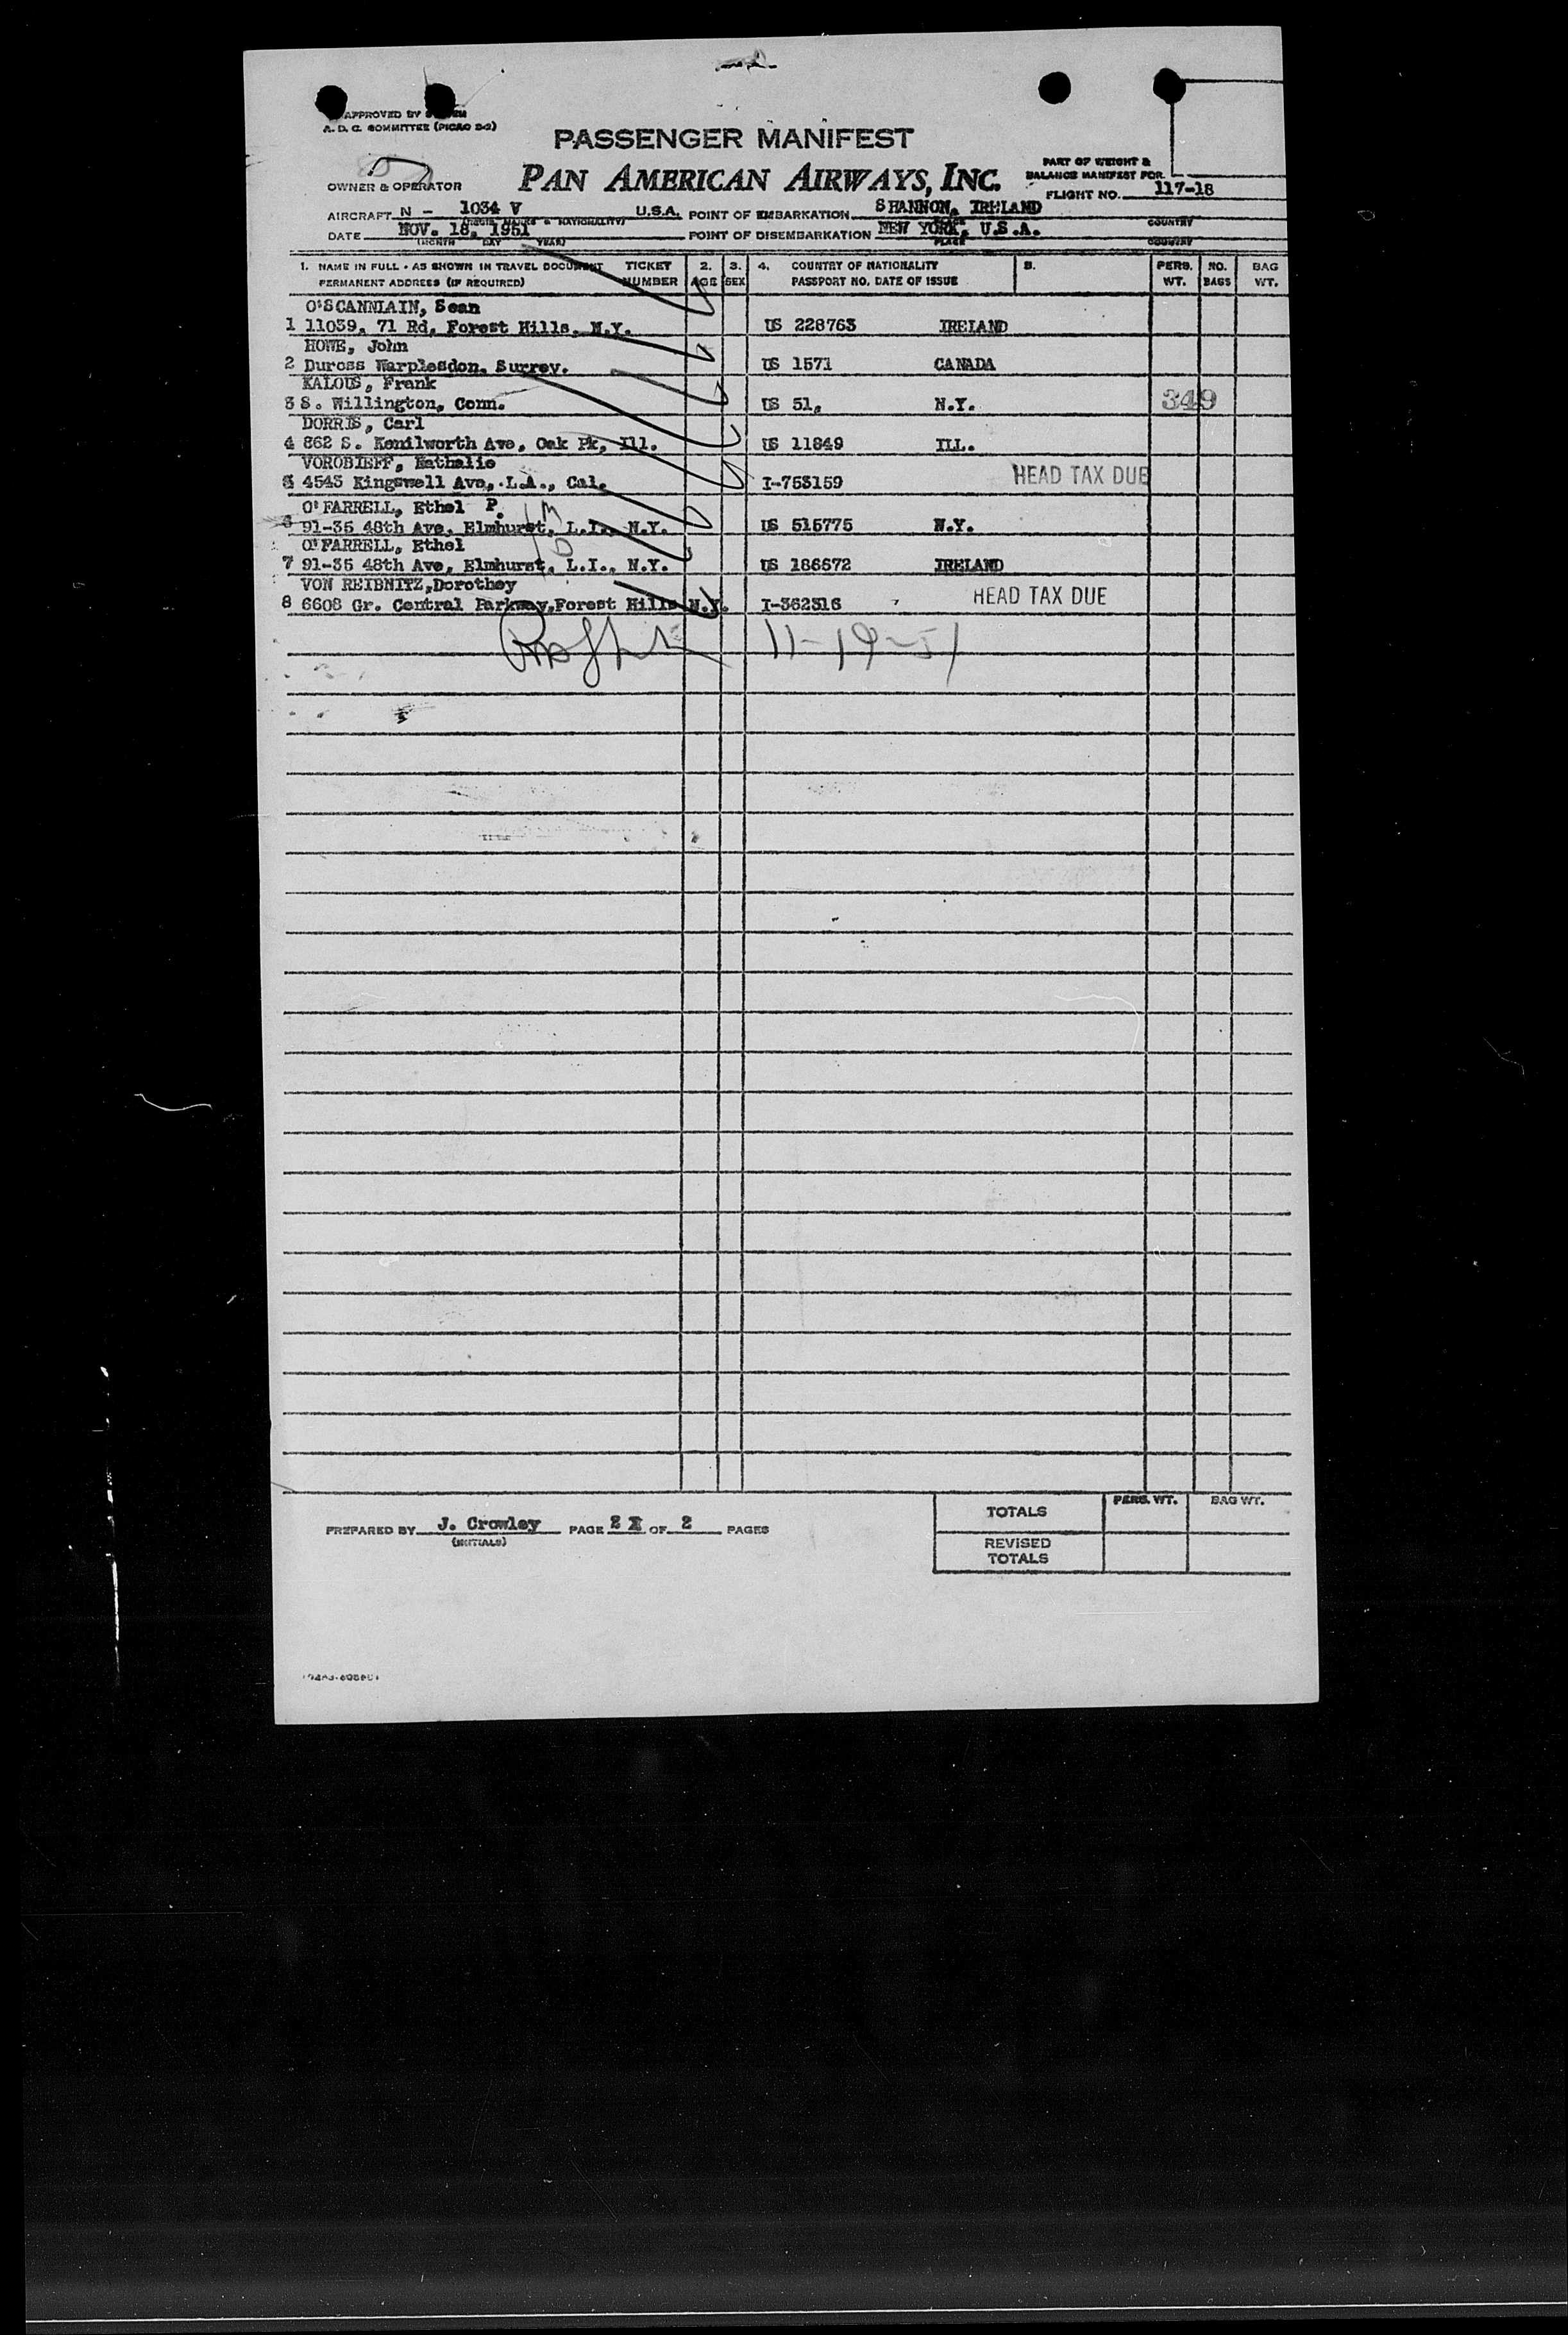 APPROVED BY SYSTEM
A. D. C. COMMITTEE (PICAO 2-2)
PASSENGER MANIFEST
PAN AMERICAN AIRWAYS, INC.
PART OF WEIGHT &
BALANCE MANIFEST FOR
OWNER & OPERATOR
FLIGHT NO. 117-18
AIRCRAFT N - 1034 V U.S.A. POINT OF EMBARKATION SHANNON, IRELAND
(REGIS. MARKS & NATIONALITY) PLACE COUNTRY
DATE NOV. 18, 1951 POINT OF DISEMBARKATION NEW YORK, U.S.A.
(MONTH DAY YEAR) PLACE COUNTRY
1. NAME IN FULL - AS SHOWN IN TRAVEL DOCUMENT TICKET 2. 3. 4. COUNTRY OF NATIONALITY 5. PERS. NO. BAG
PERMANENT ADDRESS (IF REQUIRED) NUMBER AGE SEX PASSPORT NO. DATE OF ISSUE WT. BAGS WT.
O'SCANNLAIN, Sean
1 11039, 71 Rd, Forest Hills, N.Y. US 228763 IRELAND
HOWE, John
2 Duross Warplesdon, Surrey. US 1571 CANADA
KALOUS, Frank
3 S. Willington, Conn. US 51, N.Y. 349
DORRIS, Carl
4 862 S. Kenilworth Ave, Oak Pk, Ill. US 11849 ILL.
VOROBIEFF, Nathalie
5 4543 Kingswell Ave, L.A., Cal. I-753159 HEAD TAX DUE
O'FARRELL, Ethel P.
6 91-35 48th Ave, Elmhurst, L.I., N.Y. US 515775 N.Y.
O'FARRELL, Ethel
7 91-35 48th Ave, Elmhurst, L.I., N.Y. US 186672 IRELAND
VON REIBNITZ, Dorothey
8 6608 Gr. Central Parkway, Forest Hills N.Y. I-362316 HEAD TAX DUE
11-19-51
PERS. WT. BAG WT.
TOTALS
PREPARED BY J. Crowley PAGE 2 X OF 2 PAGES
(INITIALS)
REVISED
TOTALS